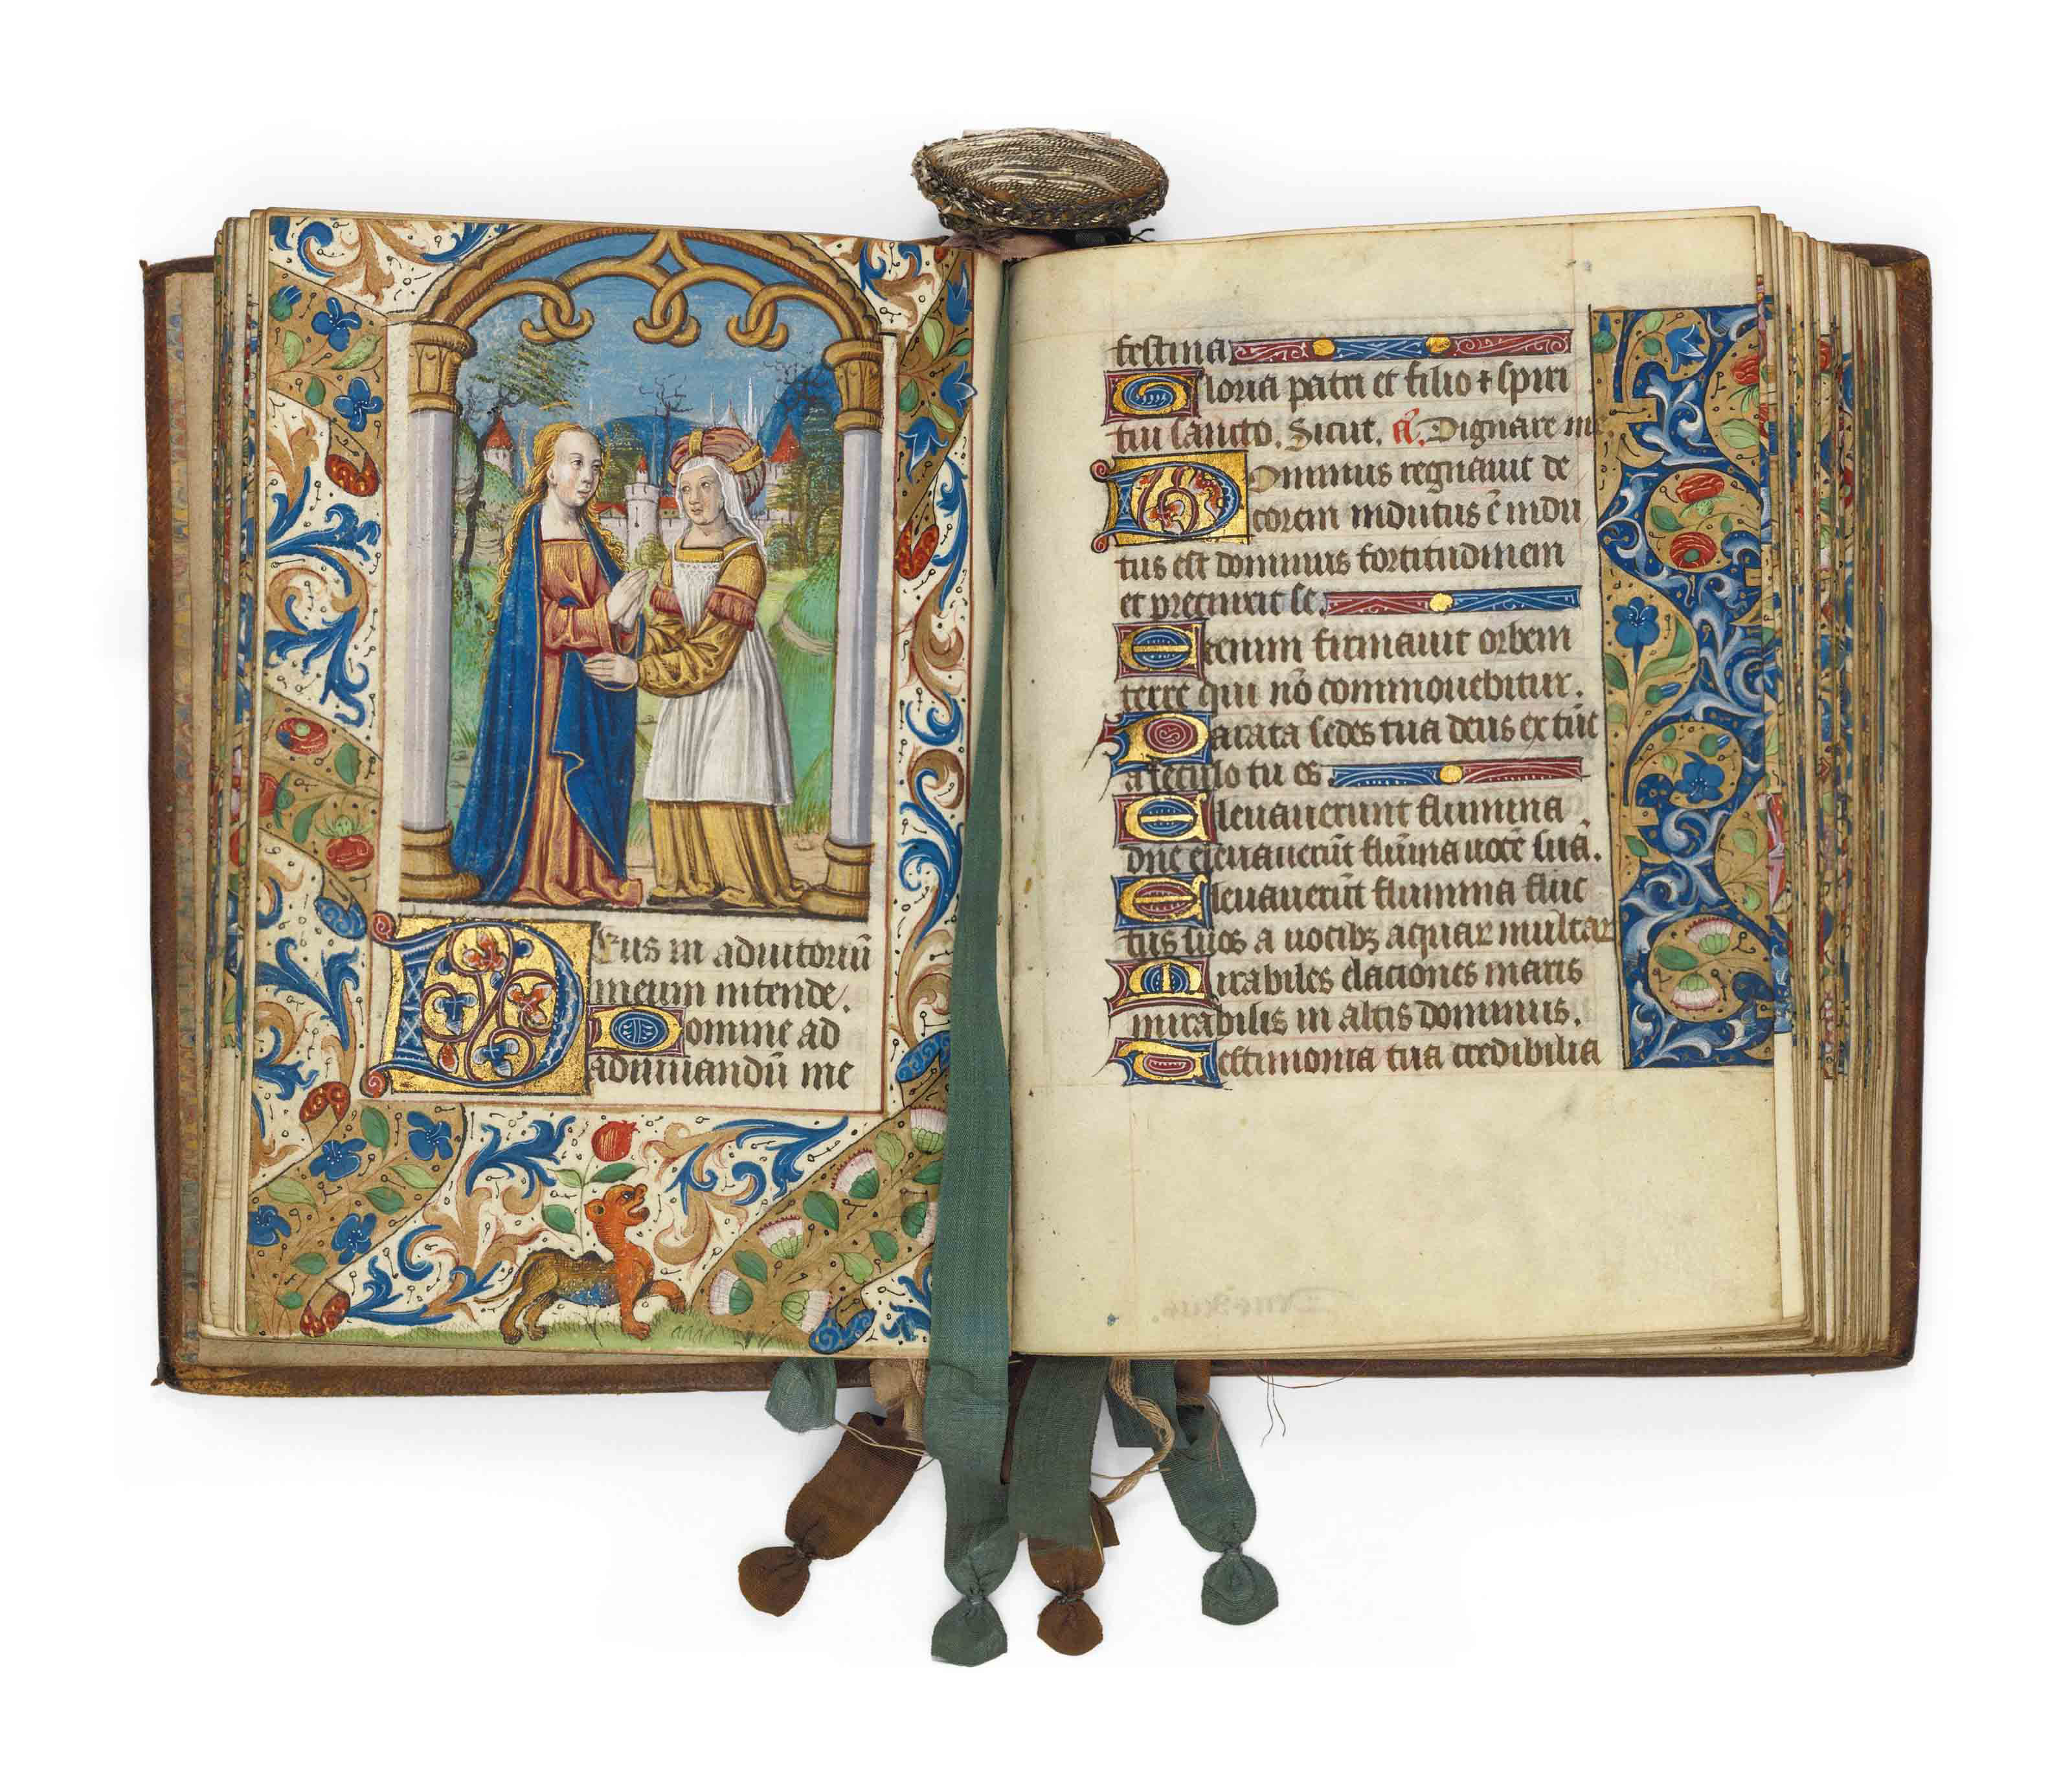 Deus in adiutoriū
meum intende.
Domine ad
adiuuandū me
festina
Gloria patri et filio ⁊ spiri
tui sancto. Sicut. a͂. Dignare me
Dominus regnauit de
corem indutus ē indu
tus est dominus fortitudinem
et precinxit se.
Etenim firmauit orbem
terre qui nō commouebitur.
Parata sedes tua deus ex tūc
a seculo tu es.
Eleuauerunt flumina
dn̄e eleuauerūt flumīa uocē suā.
Eleuauerūt flumina fluc
tus suos a uocibꝫ aquaꝝ multaꝝ
Mirabiles elaciones maris
mirabilis in altis dominus.
Testimonia tua credibilia